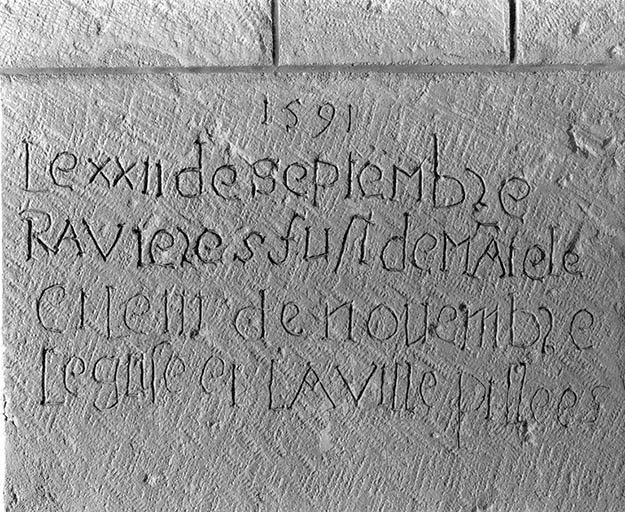 1591
Le xxii de septembre
RAVieres fust deMÃtele
et le iii de novembre
Leglise et LA Ville pillees